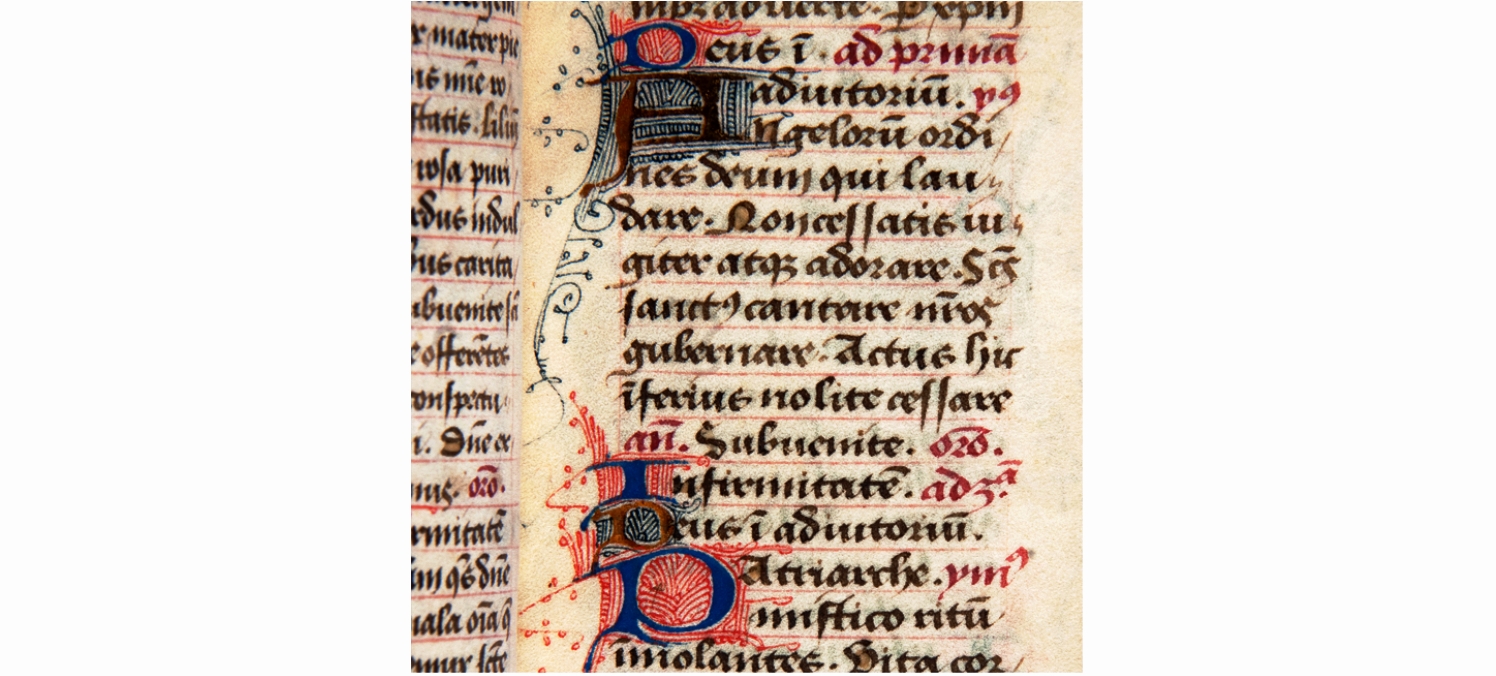 r mater pie
tatis. lilin
rosa puri
us carita
ubuenite sc̄
offerētes
conspectu
i. Dn̄e ex
oro.
rmitatē
m qs̄ dn̄e
mala oīa q̄
Deus ī. ad primā
adiutoriū. yꝯ
Angelorū ordi
nes deum qui lau
dare. Non cessatis iu
giter atqꝫ adorare. Sc̄s
sanctꝯ cantare nr̄oꝝ
gubernare. Actus hic
īferius nolite cessare
an̄. Subuenite. oro.
Infirmitatē. ad 3.ᵃ
Deus ī adiutoriū.
Patriarche. ymꝰ
mistico ritū
īmolantes. Vita cor